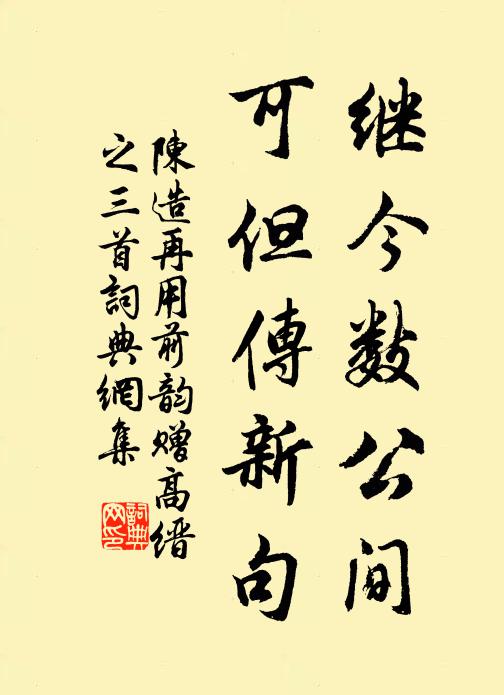 继今数公间
可但傳新句
陳造再用前韵赠高缙
之三首詞典網集
詞典
网印